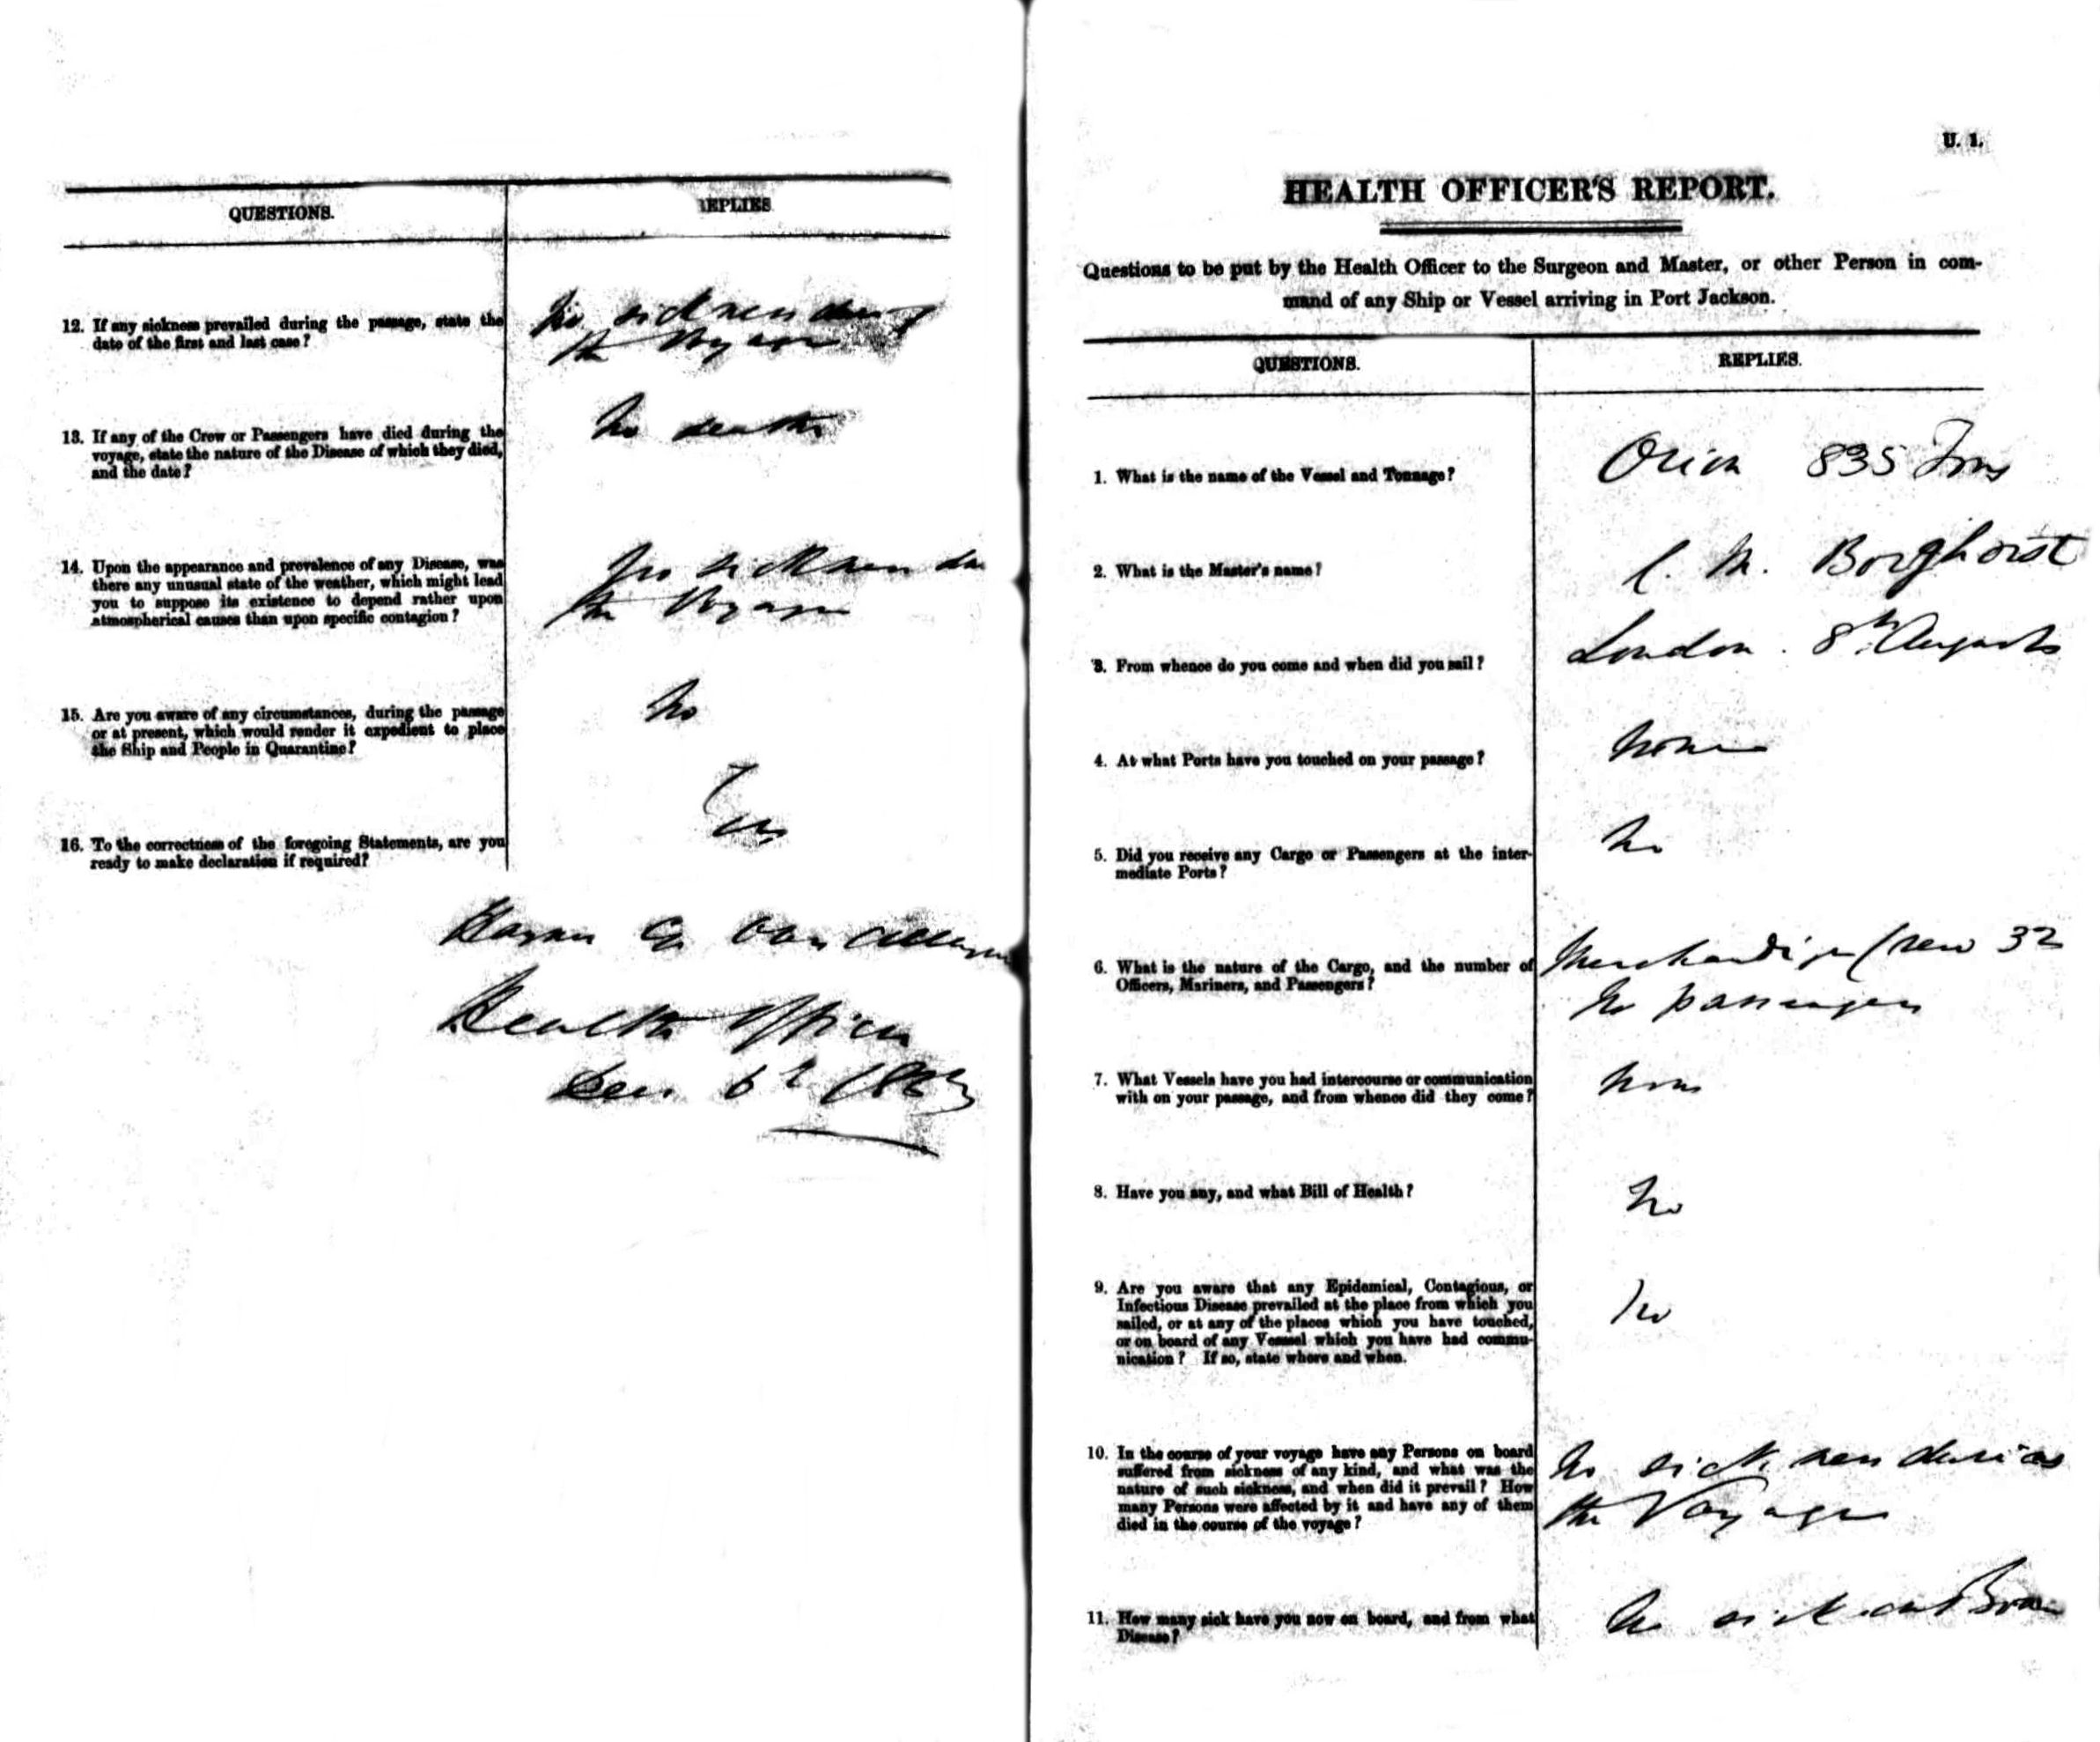 QUESTIONS.
REPLIES
12. If any sickness prevailed during the passage, state the
date of the first and last case?
No sickness during
the Voyage
13. If any of the Crew or Passengers have died during the
voyage, state the nature of the Disease of which they died,
and the date?
No deaths
14. Upon the appearance and prevalence of any Disease, was
there any unusual state of the weather, which might lead
you to suppose its existence to depend rather upon
atmospherical causes than upon specific contagion?
No sickness
the Voyage
15. Are you aware of any circumstances, during the passage
or at present, which would render it expedient to place
the Ship and People in Quarantine?
No
16. To the correctness of the foregoing Statements, are you
ready to make declaration if required?
Yes
Health Officer
1863
U. 1.
HEALTH OFFICER'S REPORT.
Questions to be put by the Health Officer to the Surgeon and Master, or other Person in com-
mand of any Ship or Vessel arriving in Port Jackson.
QUESTIONS.
REPLIES.
1. What is the name of the Vessel and Tonnage?
Orion 835 Tons
2. What is the Master's name?
C. M. Borghorst
3. From whence do you come and when did you sail?
London. 8th August
4. At what Ports have you touched on your passage?
None
5. Did you receive any Cargo or Passengers at the inter-
mediate Ports?
No
6. What is the nature of the Cargo, and the number of
Officers, Mariners, and Passengers?
Merchandize Crew 32
No passengers
7. What Vessels have you had intercourse or communication
with on your passage, and from whence did they come?
None
8. Have you any, and what Bill of Health?
No
9. Are you aware that any Epidemical, Contagious, or
Infectious Disease prevailed at the place from which you
sailed, or at any of the places which you have touched,
or on board of any Vessel which you have had commu-
nication? If so, state where and when.
No
10. In the course of your voyage have any Persons on board
suffered from sickness of any kind, and what was the
nature of such sickness, and when did it prevail? How
many Persons were affected by it and have any of them
died in the course of the voyage?
No sickness during
the Voyage
11. How many sick have you now on board, and from what
Disease?
No sick